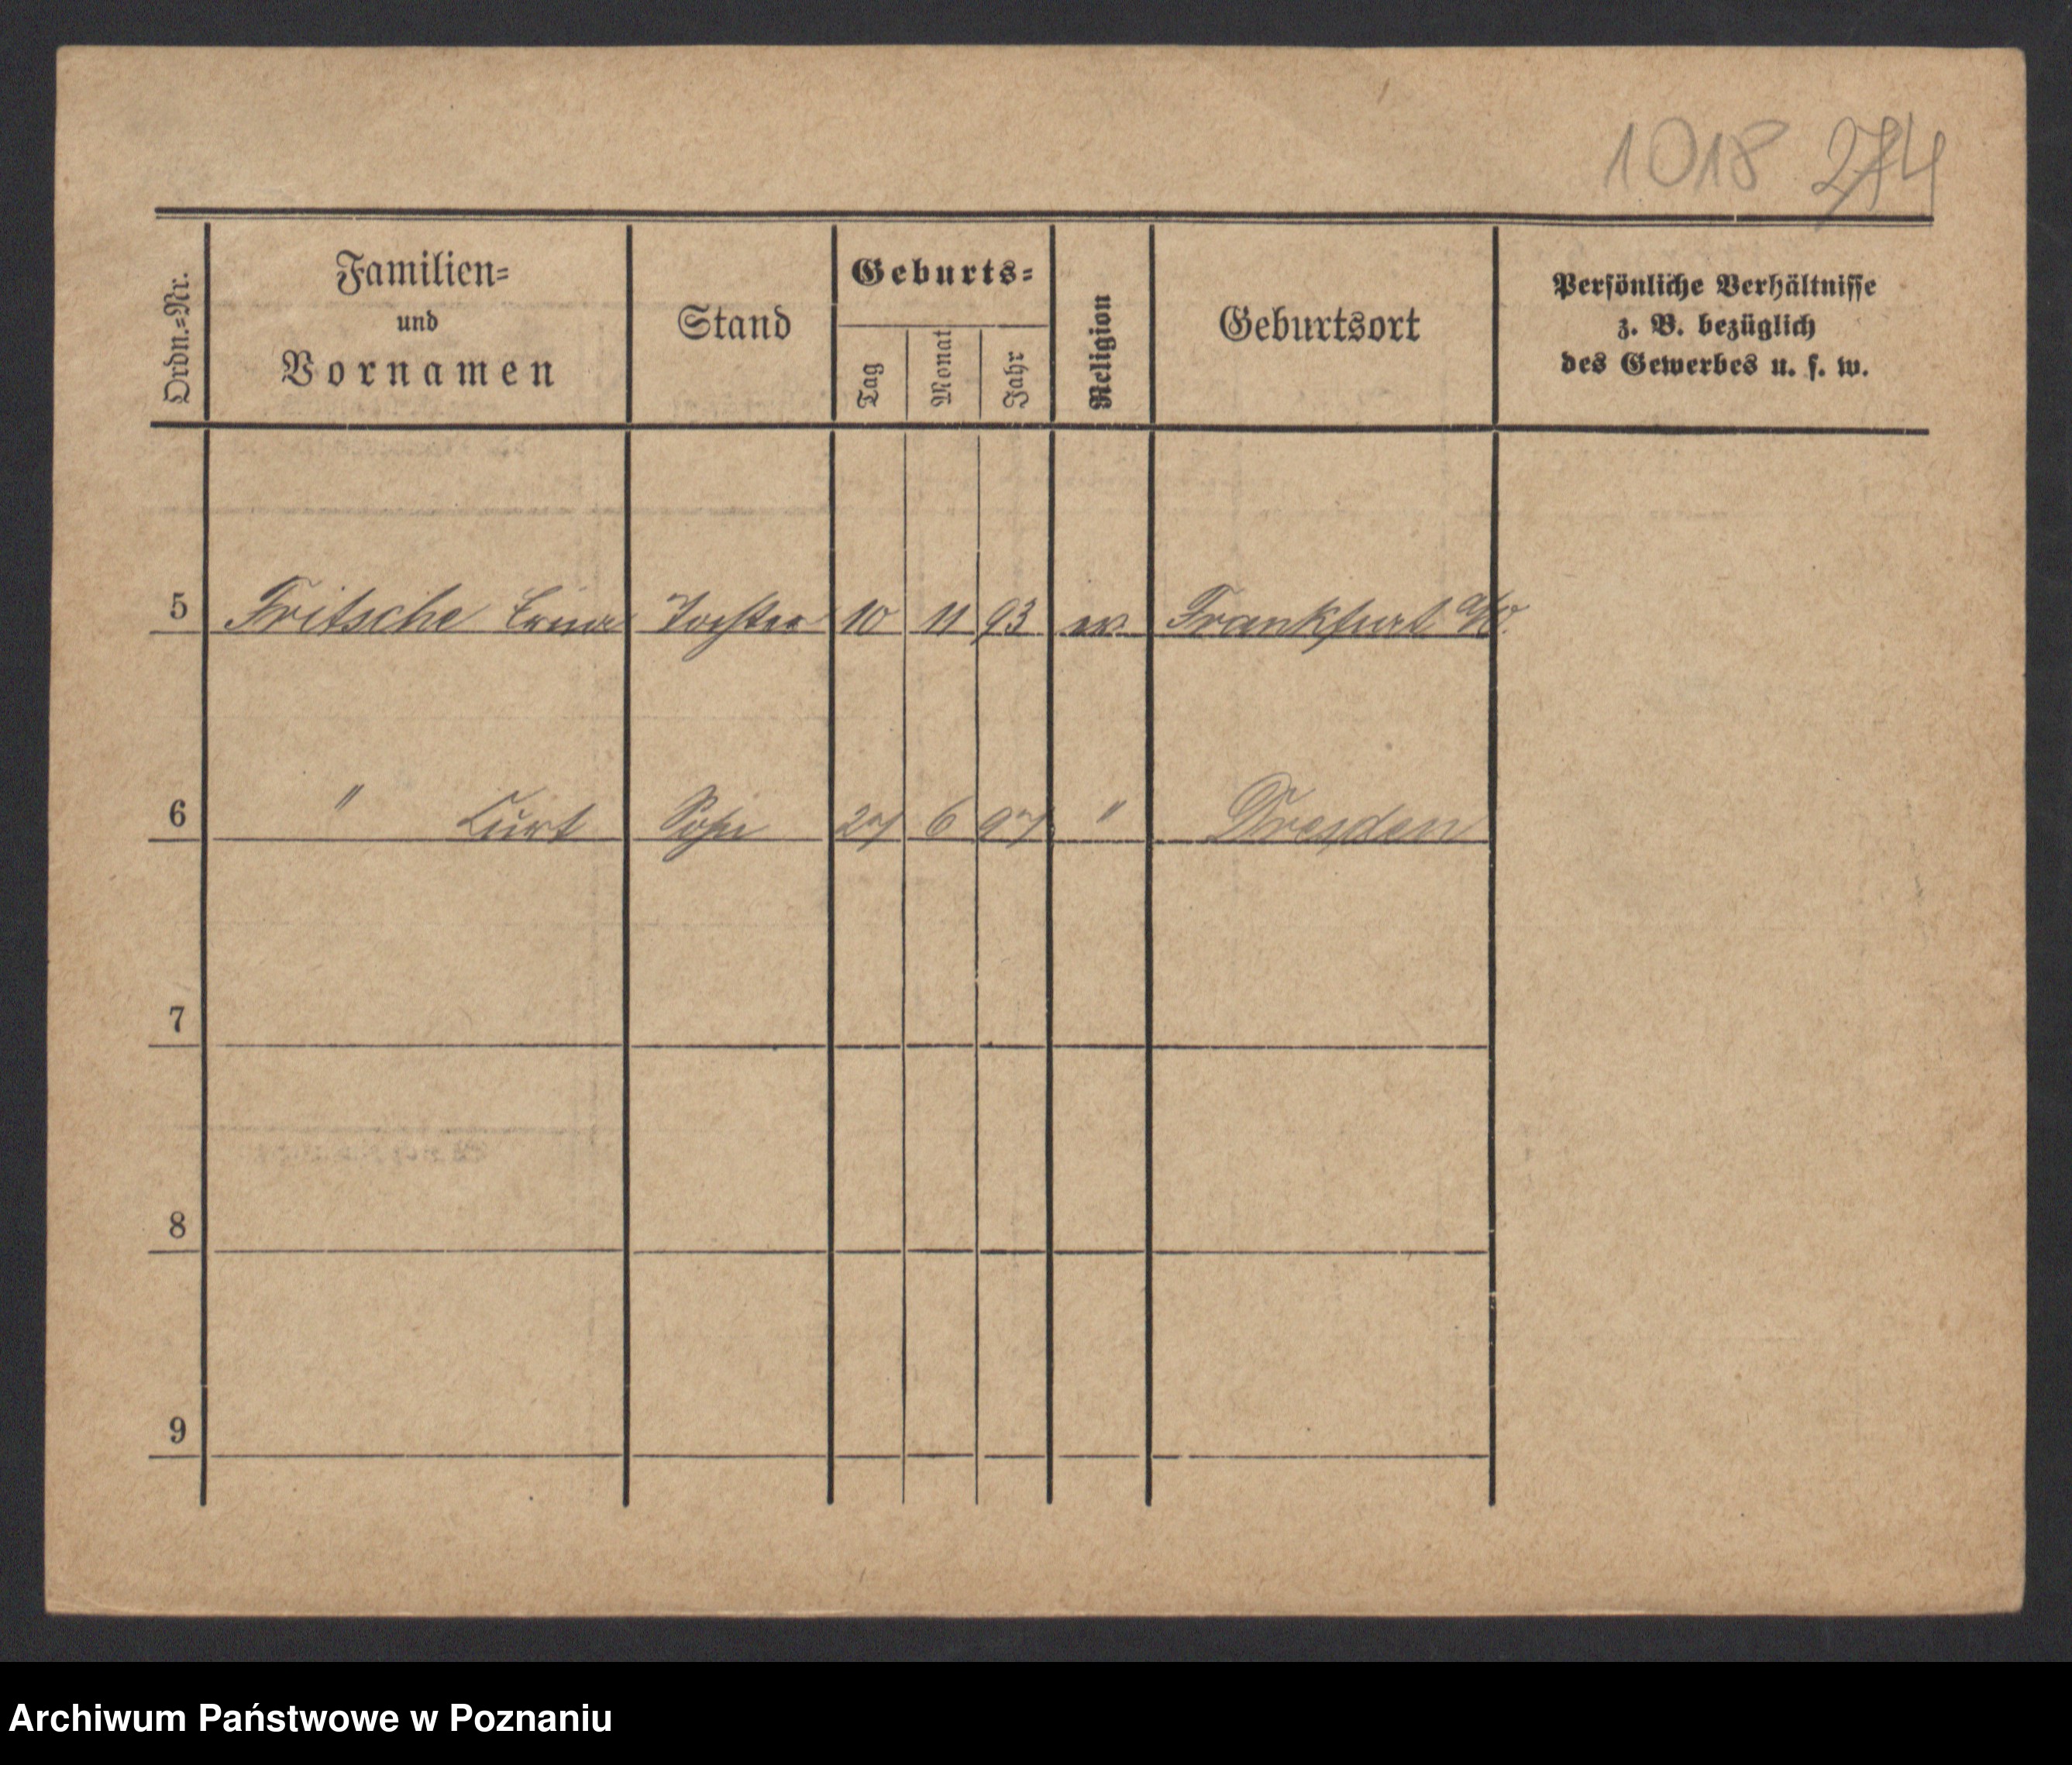 1018 274
Ordn.=Nr.
Familien=
und
Vornamen
Stand
Geburts=
Tag
Monat
Jahr
Religion
Geburtsort
Persönliche Verhältnisse
z. B. bezüglich
des Gewerbes u. s. w.
5 Fritsche Erna Tochter 10 11 93 ev. Frankfurt a/O.
6 " Curt Sohn 27 6 97 " Dresden
7
8
9
Archiwum Państwowe w Poznaniu